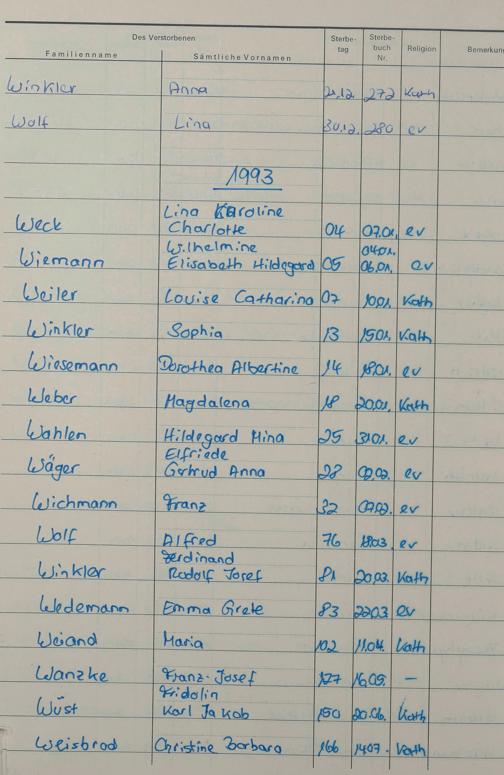 Des Verstorbenen
Familienname Sämtliche Vornamen Sterbe-tag Sterbe-buch Nr. Religion Bemerkung
Winkler Anna 21.12. 272 Kath
Wolf Lina 30.12. 280 ev
1993
Lina Karoline
Weck Charlotte 04 07.01. ev
Wilhelmine 04.01.
Wiemann Elisabeth Hildegard 05 06.01. ev
Weiler Louise Catharina 07 10.01. Kath
Winkler Sophia 13 15.01. Kath
Wiesemann Dorothea Albertine 14 18.01. ev
Weber Magdalena 18 20.01. Kath
Wahlen Hildegard Mina 25 31.01. ev
Elfriede
Wäger Gertrud Anna 28 02.02. ev
Wichmann Franz 32 07.02. ev
Wolf Alfred 76 18.03. ev
Ferdinand
Winkler Rudolf Josef 81 20.03. Kath
Wedemann Emma Grete 83 22.03 ev
Weiand Maria 102 11.04. Kath
Wanzke Franz-Josef 127 16.05. –
Fridolin
Wüst Karl Jakob 150 20.06. Kath
Weisbrod Christine Barbara 166 14.07. Kath